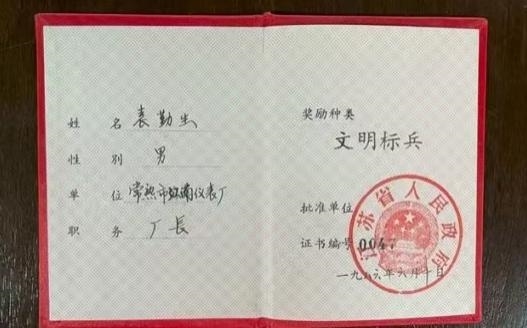 姓名 袁勤生
性别 男
单位 常熟市虹南仪表厂
职务 厂长
奖励种类
文明标兵
批准单位
江苏省人民政府
证书编号 004
一九八六年六月十日